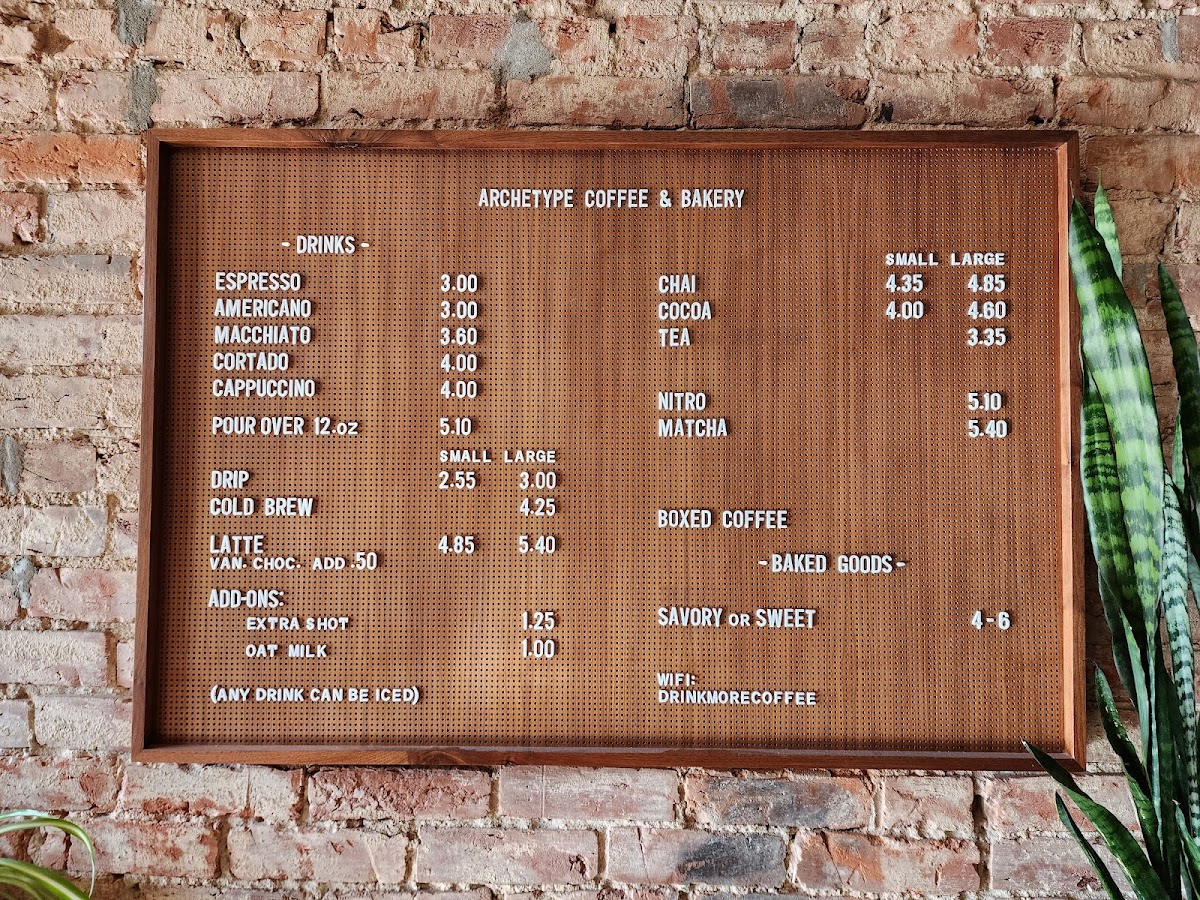 ARCHETYPE COFFEE & BAKERY
- DRINKS -
ESPRESSO 3.00
AMERICANO 3.00
MACCHIATO 3.60
CORTADO 4.00
CAPPUCCINO 4.00
POUR OVER 12.oz 5.10
SMALL LARGE
DRIP 2.55 3.00
COLD BREW 4.25
LATTE 4.85 5.40
VAN. CHOC. ADD .50
ADD-ONS:
EXTRA SHOT 1.25
OAT MILK 1.00
(ANY DRINK CAN BE ICED)
SMALL LARGE
CHAI 4.35 4.85
COCOA 4.00 4.60
TEA 3.35
NITRO 5.10
MATCHA 5.40
BOXED COFFEE
- BAKED GOODS -
SAVORY OR SWEET 4-6
WIFI:
DRINKMORECOFFEE